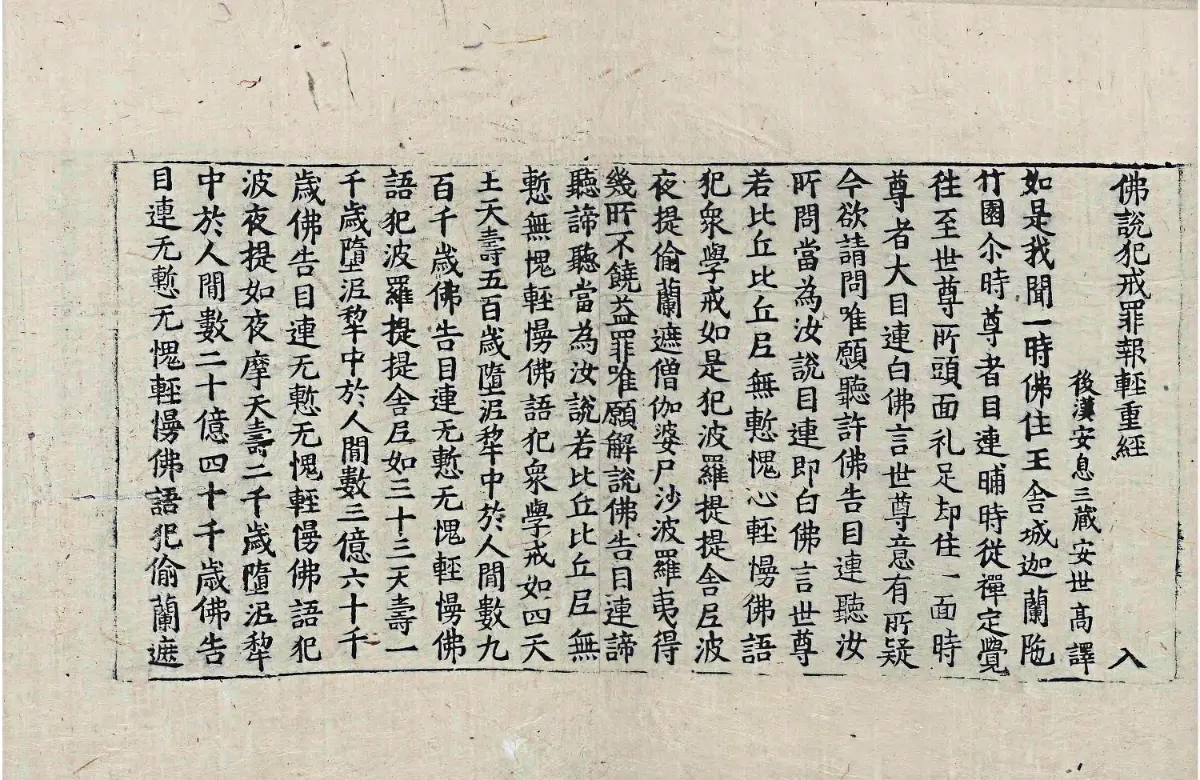 佛說犯戒罪報輕重經 入
後漢安息三藏安世高譯
如是我聞一時佛住王舍城迦蘭陁
竹園尒時尊者目連晡時從禪定覺
徃至世尊所頭面礼足却住一面時
尊者大目連白佛言世尊意有所疑
今欲請問唯願聽許佛告目連聽汝
所問當為汝說目連即白佛言世尊
若比丘比丘尼無慙愧心輕慢佛語
犯衆學戒如是犯波羅提提舍尼波
夜提偷蘭遮僧伽婆尸沙波羅夷得
幾所不饒益罪唯願解說佛告目連諦
聽諦聽當為汝說若比丘比丘尼無
慙無愧輕慢佛語犯衆學戒如四天
王天壽五百歲墮泥犁中於人間數九
百千歲佛告目連无慙无愧輕慢佛
語犯波羅提提舍尼如三十三天壽一
千歲墮泥犁中於人間數三億六十千
歲佛告目連无慙无愧輕慢佛語犯
波夜提如夜摩天壽二千歲墮泥犁
中於人間數二十億四十千歲佛告
目連无慙无愧輕慢佛語犯偷蘭遮